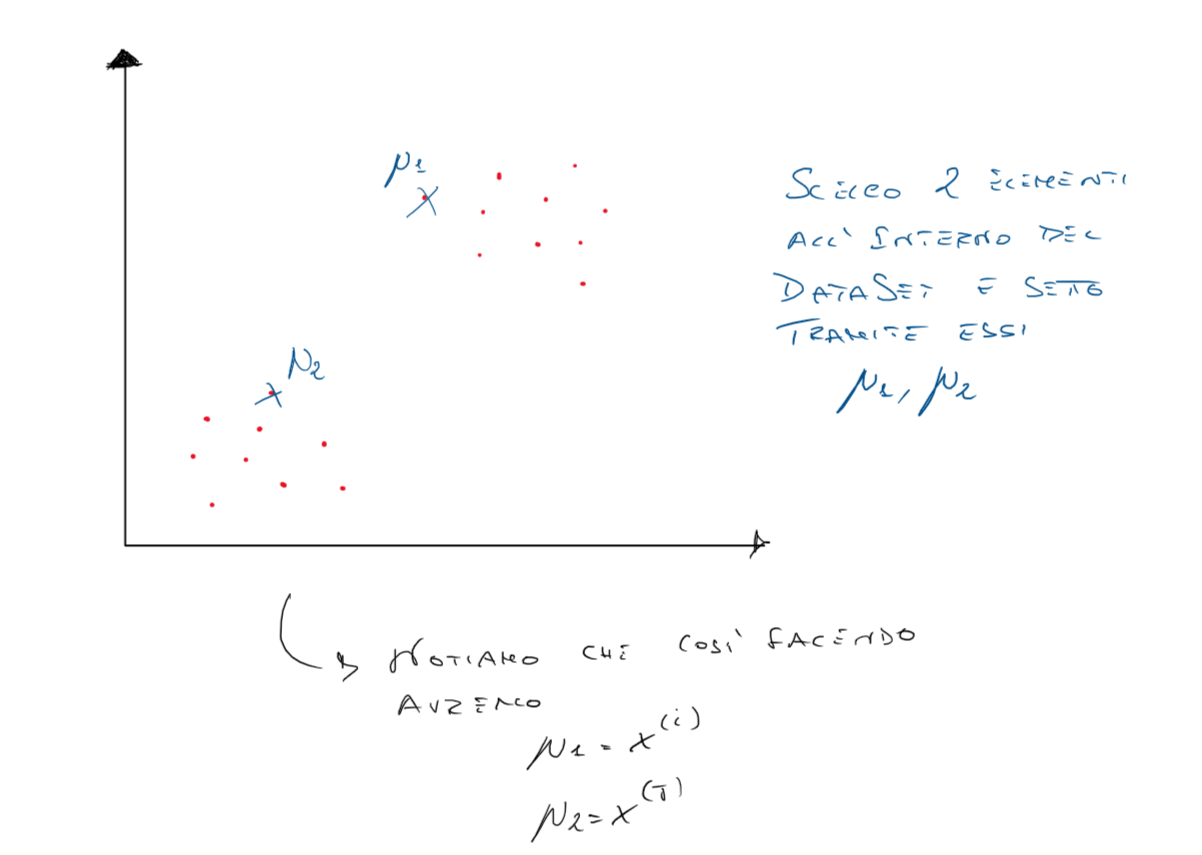 μ1
μ2
SCELGO 2 ELEMENTI
ALL'INTERNO DEL
DATASET E SETTO
TRAMITE ESSI
μ1, μ2
NOTIAMO CHE COSÌ FACENDO
AVREMO
μ1 = x^(i)
μ2 = x^(J)